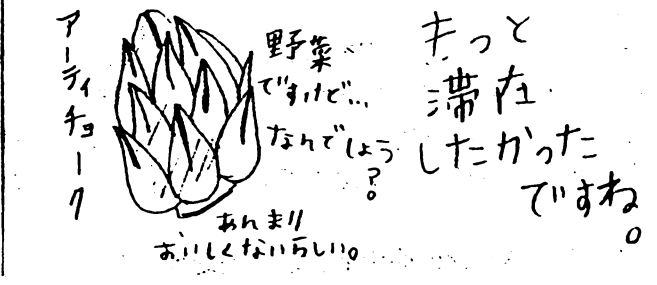 アーティチョーク
野菜
ですけど…
なんでしょう
?。
あんまり
おいしくないらしい。
もっと
滞在
したかった
ですね。